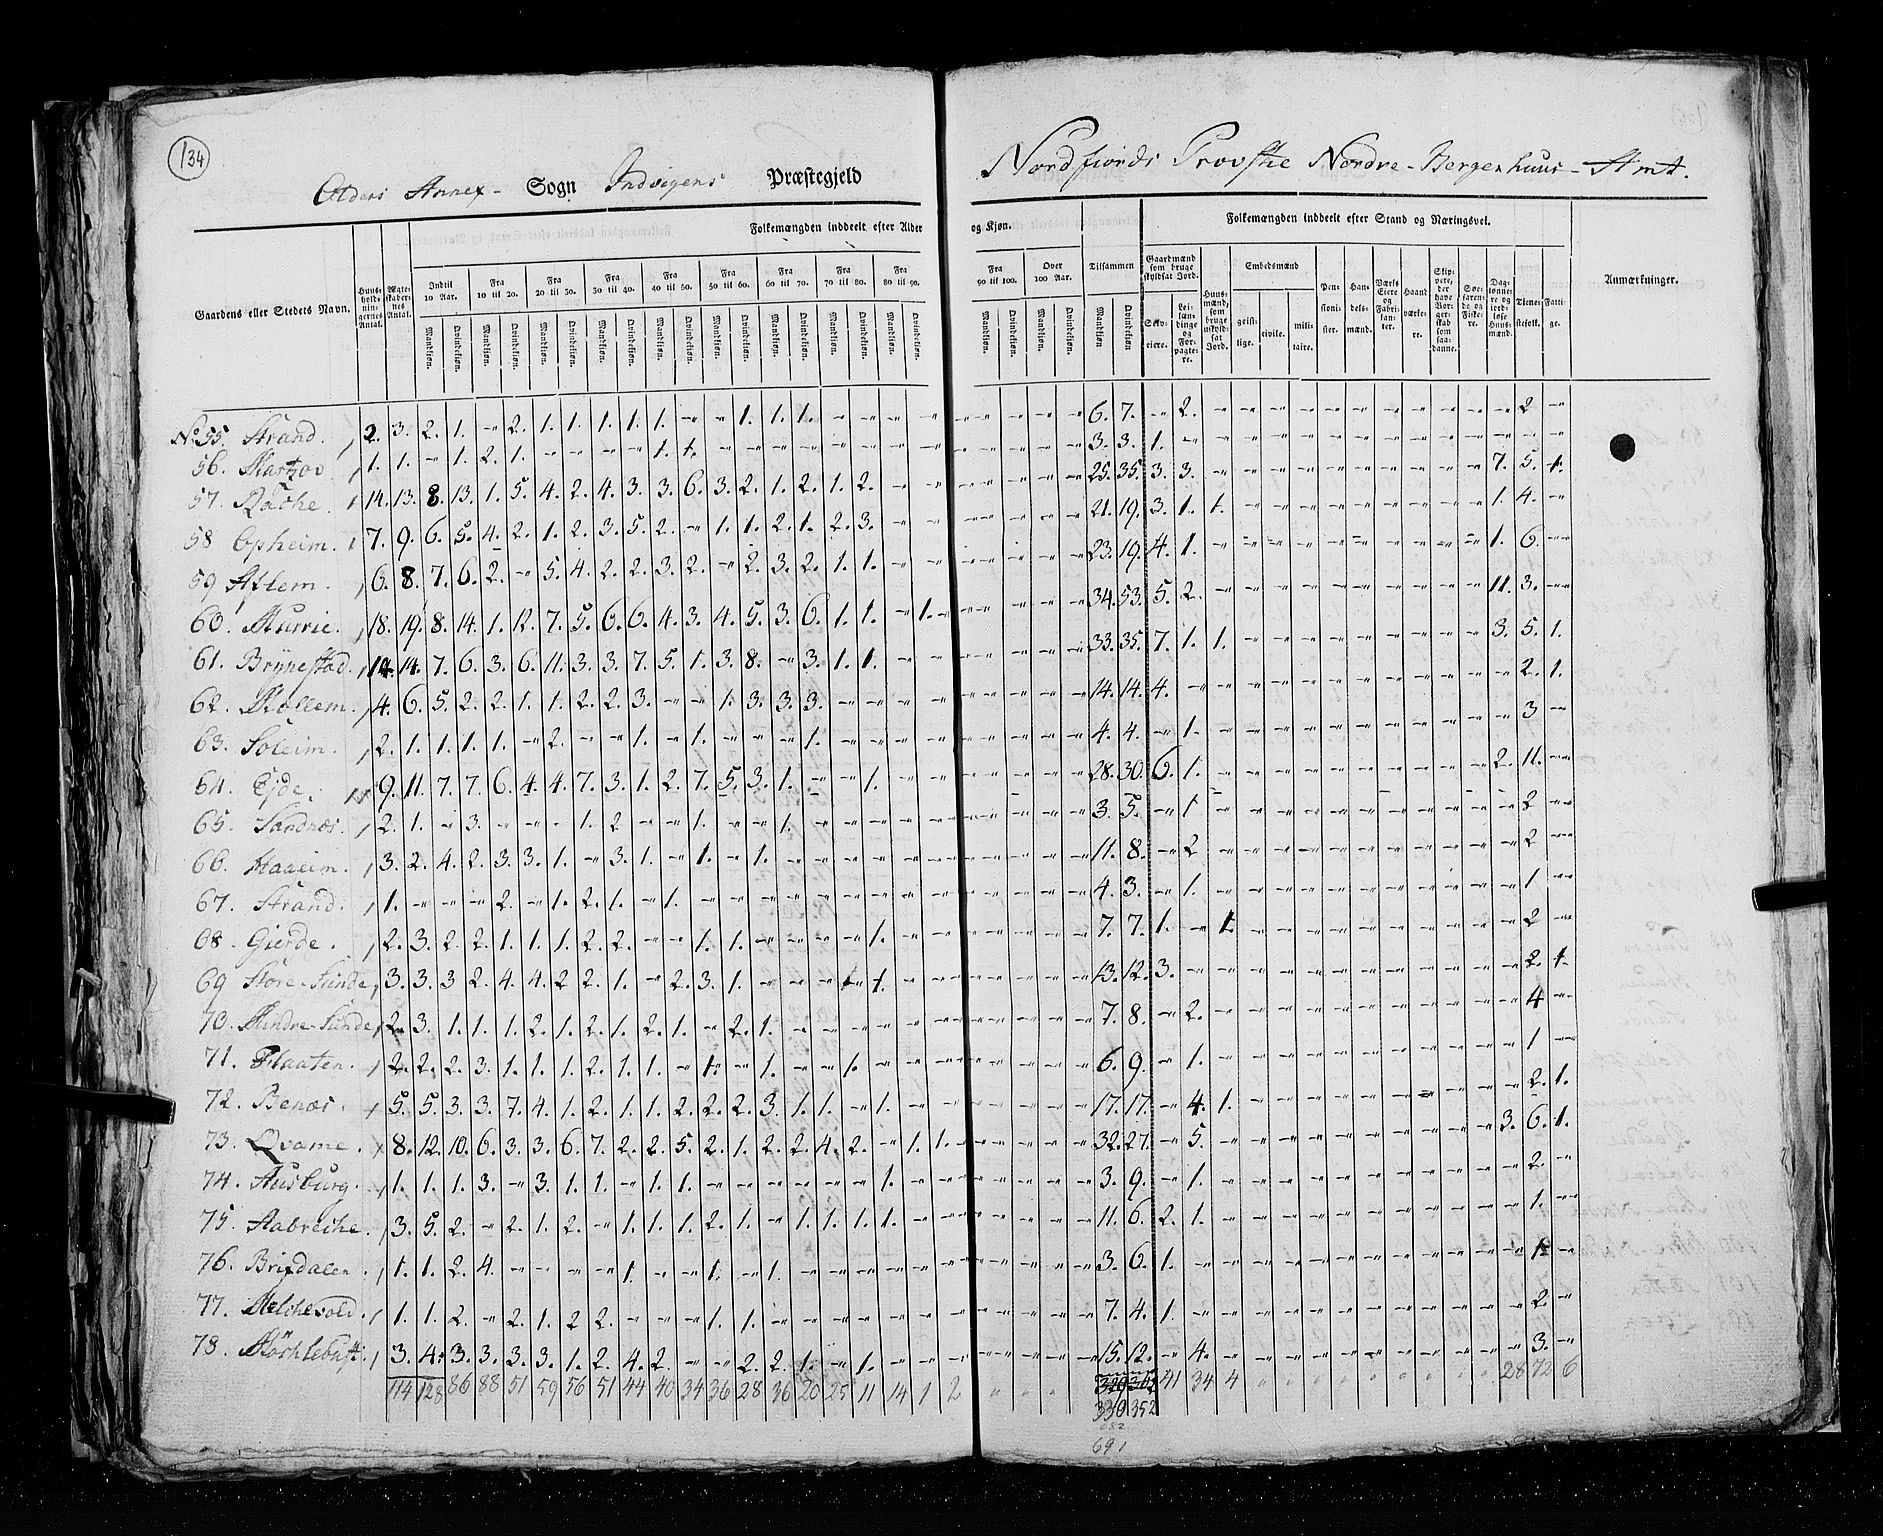 134
Oldens Annex- Sogn Indvigens Præstegjeld
Nordfiords Provstie Nordre-Bergenhuus-Amt.
Folkemængden inddeelt efter Alder og Kjøn.
Folkemængden inddeelt efter Stand og Næringsvei.
Gaardens eller Stedets Navn.
Huus-holdningernes Antal.
Ægte-skabernes Antal.
Indtil 10 Aar.
Fra 10 til 20.
Fra 20 til 30.
Fra 30 til 40.
Fra 40 til 50.
Fra 50 til 60.
Fra 60 til 70.
Fra 70 til 80.
Fra 80 til 90.
Fra 90 til 100.
Over 100 Aar.
Tilsammen
Mandkjøn. Qvindekjøn.
Gaardmænd som bruge skyldsat Jord.
Selv-eiere.
Lei-lændinge og For-pagtere.
Huus-mænd, som bruge uskyld-sat Jord.
Embedsmænd
geist-lige. civile. mili-taire.
Pen-sioni-ster.
Han-dels-mænd.
Værks Eiere og Fabri-kanter.
Haand værke-re.
Skip-pere, der have Bor-ger-skab som saa-danne.
Søe-farende og Fiske-re.
Dag-lønnere og jord-løse Huus-mænd.
Tjene-stefolk.
Fatti-ge.
Anmærkninger.
No 55. Strand. 2. 3. 2. 1. - 2. 1. 1. 1. 1. 1. - - 1. 1. 1. - - - - - - - - 6. 7. - 2. - - - - - - - - - - - 2 -
56. 1. 1. - 1. 2. 1. - - - - 1. 1. - - - - - - - - - - - - 3. 3. 1. - - - - - - - - - - - - - -
57. 14. 13. 8. 13. 1. 5. 4. 2. 4. 3. 3. 6. 3. 2. 1. 2. 1. 2. - - - - - - 25. 35. 3. 3. - - - - - - - - - - 7. 5. 1.
58 Opheim. 7. 9. 6. 5. 4. 2. 1. 2. 3. 5. 2. - 1. 1. 2. 1. 2. 3. - - - - - - 21. 19. 3. 1. 1. - - - - - - - - - 1. 4. -
59 Aflem. 6. 8. 7. 6. 2. - 5. 4. 2. 2. 3. 2. - 2. 3. 2. 1. 1. - - - - - - 23. 19. 4. 1. - - - - - - - - - - 1. 6. -
60. 18. 19. 8. 14. 1. 12. 7. 5. 6. 6. 4. 3. 4. 5. 3. 6. 1. 1. - 1. - - - - 34. 53. 5. 2. - - - - - - - - - - 11. 3. -
61. Brynestad. 14. 14. 7. 6. 3. 6. 11. 3. 3. 7. 5. 1. 3. 8. - 3. 1. 1. - - - - - - 33. 35. 7. 1. 1. - - - - - - - - - 3. 5. 1.
62. 4. 6. 5. 2. 2. 1. 1. 2. 2. 3. - - 1. 3. 3. 3. - - - - - - - - 14. 14. 4. - - - - - - - - - - - - 2. 1.
63. Soleim. 2. 1. 1. 1. 1. - 2. - - 1. - 1. - - - 1. - - - - - - - - 4. 4. - 1. - - - - - - - - - - - 3 -
64. Eide. 9. 11. 7. 7. 6. 4. 4. 7. 3. 1. 2. 7. 5. 3. 1. - - 1. - - - - - - 28. 30. 6. 1. - - - - - - - - - - 2. 11. -
65. Sandnæs. 2. 1. - 3. - - - 1. 2 - - 1. - - 1. - - - - - - - - - 3. 5. - 1 - - - - - - - - - - - 2 -
66. Haaeim. 3. 2. 4. 2. 3. 3. 1. - 3. 1. - 1. - 1. - - - - - - - - - - 11. 8. - 2 - - - - - - - - - - - 2 -
67. Strand. 1. - - - 2. - 1. 2. 1. - 1. - - - - - - - - - - - - - 4. 3. - 1. - - - - - - - - - - - 1 -
68. Gierde. 2. 3. 2. 2. 1. 1. 1. 2. 2. - - 1. 1. - - - - 1. - - - - - - 7. 7. 1. - 1. - - - - - - - - - - 2 -
69 Store-Sunde. 3. 3. 3 2. 4. 4. 2 2. 1. - 2. 3. 1. - - - 1 1. - - - - - - 13. 12. 3. - - - - - - - - - - - - 2. 1.
70. Mindre-Sunde. 2. 3. 1. 1. 1. 2. 1. 2. 1. 2. 1. - 2. 1. - - - - - - - - - - 7. 8. - 2. - - - - - - - - - - - 4 -
71. Flaaten. 2. 2. 2. 3. 1. 1. 1. 2. 1. 1. - 1. - 1. - - 1. - - - - - - - 6. 9. - 1. - - - - - - - - - - - 1 -
72. Benæs. 5. 5. 3. 3. 7. 4. 1. 2. 1. 1. 2. 2. 2. 3. 1. 1. - 1. - - - - - - 17. 17. - 4. 1. - - - - - - - - - - 2. 1.
73. Qvame. 8. 12. 10. 6. 3. 3. 6. 7. 2. 2. 5. 2. 1. 2. 2. 4. 2. - 1. 1. - - - - 32. 27. - 5. - - - - - - - - - - 3. 6. 1.
74. 1. 1. 1. 3. - 3. 1. 1. - 1. 1. - - - - - - 1. - - - - - - 3. 9. - 1. - - - - - - - - - - - 2. -
75. Aabreche. 3. 5. 2. - 2. 1. 2. - 1. 1. 1. 2. 1. - 1. 1. 1. 1. - - - - - - 11. 6. 2. 1. - - - - - - - - - - - 1. -
76. Brixdalen. 1. 1. 2. 4. - - - - 1. - - 1. - 1. - - - - - - - - - - 3. 6. 1. - - - - - - - - - - - - 1 -
77. Melchevold. 1. 1. 2. - 2. 1. 2 2. - - - 1. 1. - - - - - - - - - - - 7. 4. 1. - - - - - - - - - - - - 2. -
78. 3. 4. 3. 3. 3. 3. 1. 2. 4. 2. - - 2. 2. 1. - 1. - - - - - - - 15. 12. - 4. - - - - - - - - - - - 3. -
114 128 86 88 51 59 56 51 44 40 34 36 28 36 20 25 11 14 1 2 41 34 4 28 72 6
330 352
682
691